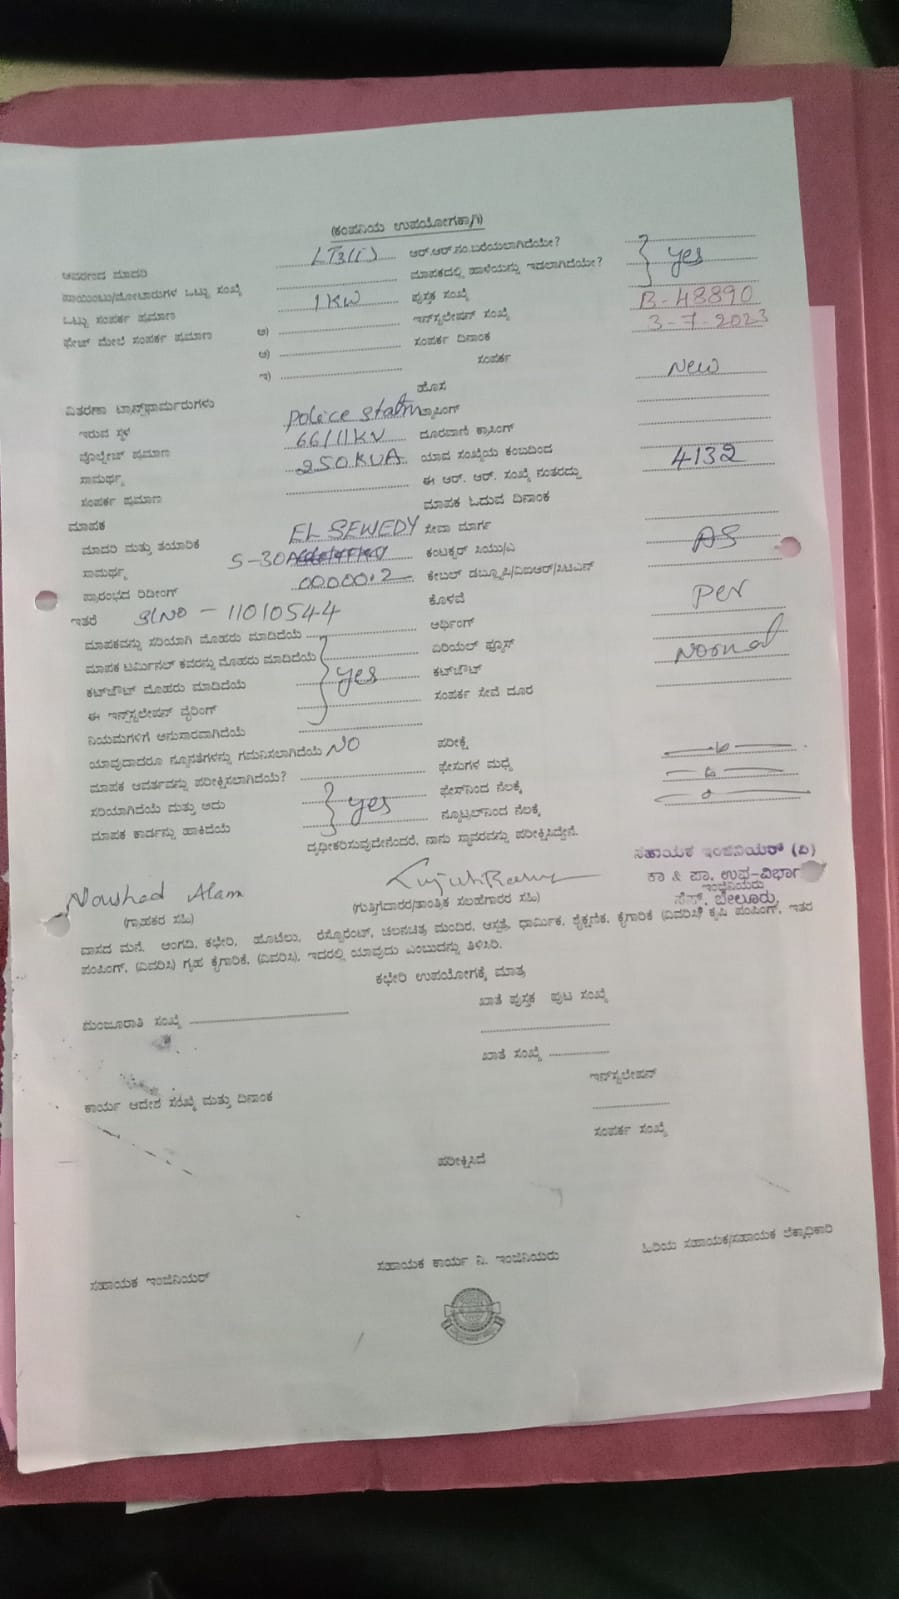 (ಕಂಪನಿಯ ಉಪಯೋಗಕ್ಕಾಗಿ)
ಆವರಣದ ಮಾದರಿ LT3(i) ಆರ್.ಆರ್.ನಂ.ಬರೆಯಲಾಗಿದೆಯೇ? yes
ಪಾಯಿಂಟು/ಮೋಟಾರುಗಳ ಒಟ್ಟು ಸಂಖ್ಯೆ ಮಾಪಕದಲ್ಲಿ ಹಾಳೆಯನ್ನು ಇಡಲಾಗಿದೆಯೇ?
ಒಟ್ಟು ಸಂಪರ್ಕ ಪ್ರಮಾಣ 1KW ಪುಸ್ತಕ ಸಂಖ್ಯೆ
ಫೇಜ್ ಮೇಲೆ ಸಂಪರ್ಕ ಪ್ರಮಾಣ ಅ) ಇನ್‌ಸ್ಟಲೇಷನ್ ಸಂಖ್ಯೆ B-48890
ಆ) ಸಂಪರ್ಕ ದಿನಾಂಕ 3-7-2023
ಇ) ಸಂಪರ್ಕ
ವಿತರಣಾ ಟ್ರಾನ್ಸ್‌ಫಾರ್ಮರುಗಳು ಹೊಸ New
ಇರುವ ಸ್ಥಳ Police Station ಕ್ರಾಸಿಂಗ್
ವೊಲ್ಟೇಜ್ ಪ್ರಮಾಣ 66/11KV ದೂರವಾಣಿ ಕ್ರಾಸಿಂಗ್
ಸಾಮರ್ಥ್ಯ 250KVA ಯಾವ ಸಂಖ್ಯೆಯ ಕಂಬದಿಂದ
ಸಂಪರ್ಕ ಪ್ರಮಾಣ ಈ ಆರ್. ಆರ್. ಸಂಖ್ಯೆ ನಂತರದ್ದು 4132
ಮಾಪಕ ಮಾಪಕ ಓದುವ ದಿನಾಂಕ
ಮಾದರಿ ಮತ್ತು ತಯಾರಿಕೆ EL SEWEDY ಸೇವಾ ಮಾರ್ಗ
ಸಾಮರ್ಥ್ಯ 5-30A ಕಂಟಕ್ಟರ್ ಸಿಯು/ಎ AS
ಪ್ರಾರಂಭದ ರಿಡೀಂಗ್ 00000.2 ಕೇಬಲ್ ಡಬ್ಲ್ಯೂಪಿ/ವಿಐಆರ್/ಸಿಟಿಎನ್
ಇತರೆ SlNo - 11010544 ಕೊಳವೆ
ಮಾಪಕವನ್ನು ಸರಿಯಾಗಿ ಮೊಹರು ಮಾಡಿದೆಯೆ ಅರ್ಥಿಂಗ್ per
ಮಾಪಕ ಟರ್ಮಿನಲ್ ಕವರನ್ನು ಮೊಹರು ಮಾಡಿದೆಯೆ ಏರಿಯಲ್ ಫ್ಯೂಸ್
ಕಟ್‌ಔಟ್ ಮೊಹರು ಮಾಡಿದೆಯೆ yes ಕಟ್‌ಔಟ್ Normal
ಈ ಇನ್ಸ್‌ಟಲೇಷನ್ ವೈರಿಂಗ್ ಸಂಪರ್ಕ ಸೇವೆ ದೂರ
ನಿಯಮಗಳಿಗೆ ಅನುಸಾರವಾಗಿದೆಯೆ
ಯಾವುದಾದರೂ ನ್ಯೂನತೆಗಳನ್ನು ಗಮನಿಸಲಾಗಿದೆಯೆ NO ಪರೀಕ್ಷೆ
ಮಾಪಕ ಆವರ್ತವನ್ನು ಪರೀಕ್ಷಿಸಲಾಗಿದೆಯೆ? ಫೇಸುಗಳ ಮಧ್ಯೆ
ಸರಿಯಾಗಿದೆಯೆ ಮತ್ತು ಅದು yes ಫೇಸ್‌ನಿಂದ ನೆಲಕ್ಕೆ
ಮಾಪಕ ಕಾರ್ಡನ್ನು ಹಾಕಿದೆಯೆ ನ್ಯೂಟ್ರಲ್‌ನಿಂದ ನೆಲಕ್ಕೆ
ದೃಢೀಕರಿಸುವುದೇನೆಂದರೆ, ನಾನು ಸ್ಥಾವರವನ್ನು ಪರೀಕ್ಷಿಸಿದ್ದೇನೆ.
Nowshad Alam ಸಹಾಯಕ ಇಂಜಿನಿಯರ್ (ವಿ)
ಕಾ & ಪಾ. ಉಪ-ವಿಭಾಗ
(ಗ್ರಾಹಕರ ಸಹಿ) (ಗುತ್ತಿಗೆದಾರರ/ತಾಂತ್ರಿಕ ಸಲಹೆಗಾರರ ಸಹಿ) ಇಂಜಿನಿಯರು
ಸೆಸ್ಕ್, ಬೇಲೂರು.
ವಾಸದ ಮನೆ, ಅಂಗಡಿ, ಕಛೇರಿ, ಹೊಟೆಲು, ರೆಸ್ಟೊರೆಂಟ್, ಚಲನಚಿತ್ರ ಮಂದಿರ, ಆಸ್ಪತ್ರೆ, ಧಾರ್ಮಿಕ, ಶೈಕ್ಷಣಿಕ, ಕೈಗಾರಿಕೆ (ವಿವರಿಸಿ) ಕೃಷಿ ಪಂಪಿಂಗ್, ಇತರ
ಪಂಪಿಂಗ್, (ವಿವರಿಸಿ) ಗೃಹ ಕೈಗಾರಿಕೆ, (ವಿವರಿಸಿ), ಇದರಲ್ಲಿ ಯಾವುದು ಎಂಬುದನ್ನು ತಿಳಿಸಿರಿ.
ಕಛೇರಿ ಉಪಯೋಗಕ್ಕೆ ಮಾತ್ರ
ಮಂಜೂರಾತಿ ಸಂಖ್ಯೆ ಖಾತೆ ಪುಸ್ತಕ ಪುಟ ಸಂಖ್ಯೆ
ಖಾತೆ ಸಂಖ್ಯೆ
ಇನ್‌ಸ್ಟಲೇಷನ್
ಕಾರ್ಯ ಆದೇಶ ಸಂಖ್ಯೆ ಮತ್ತು ದಿನಾಂಕ
ಸಂಪರ್ಕ ಸಂಖ್ಯೆ
ಪರೀಕ್ಷಿಸಿದೆ
ಸಹಾಯಕ ಇಂಜಿನಿಯರ್ ಸಹಾಯಕ ಕಾರ್ಯ ನಿ. ಇಂಜಿನಿಯರು ಹಿರಿಯ ಸಹಾಯಕ/ಸಹಾಯಕ ಲೆಕ್ಕಾಧಿಕಾರಿ